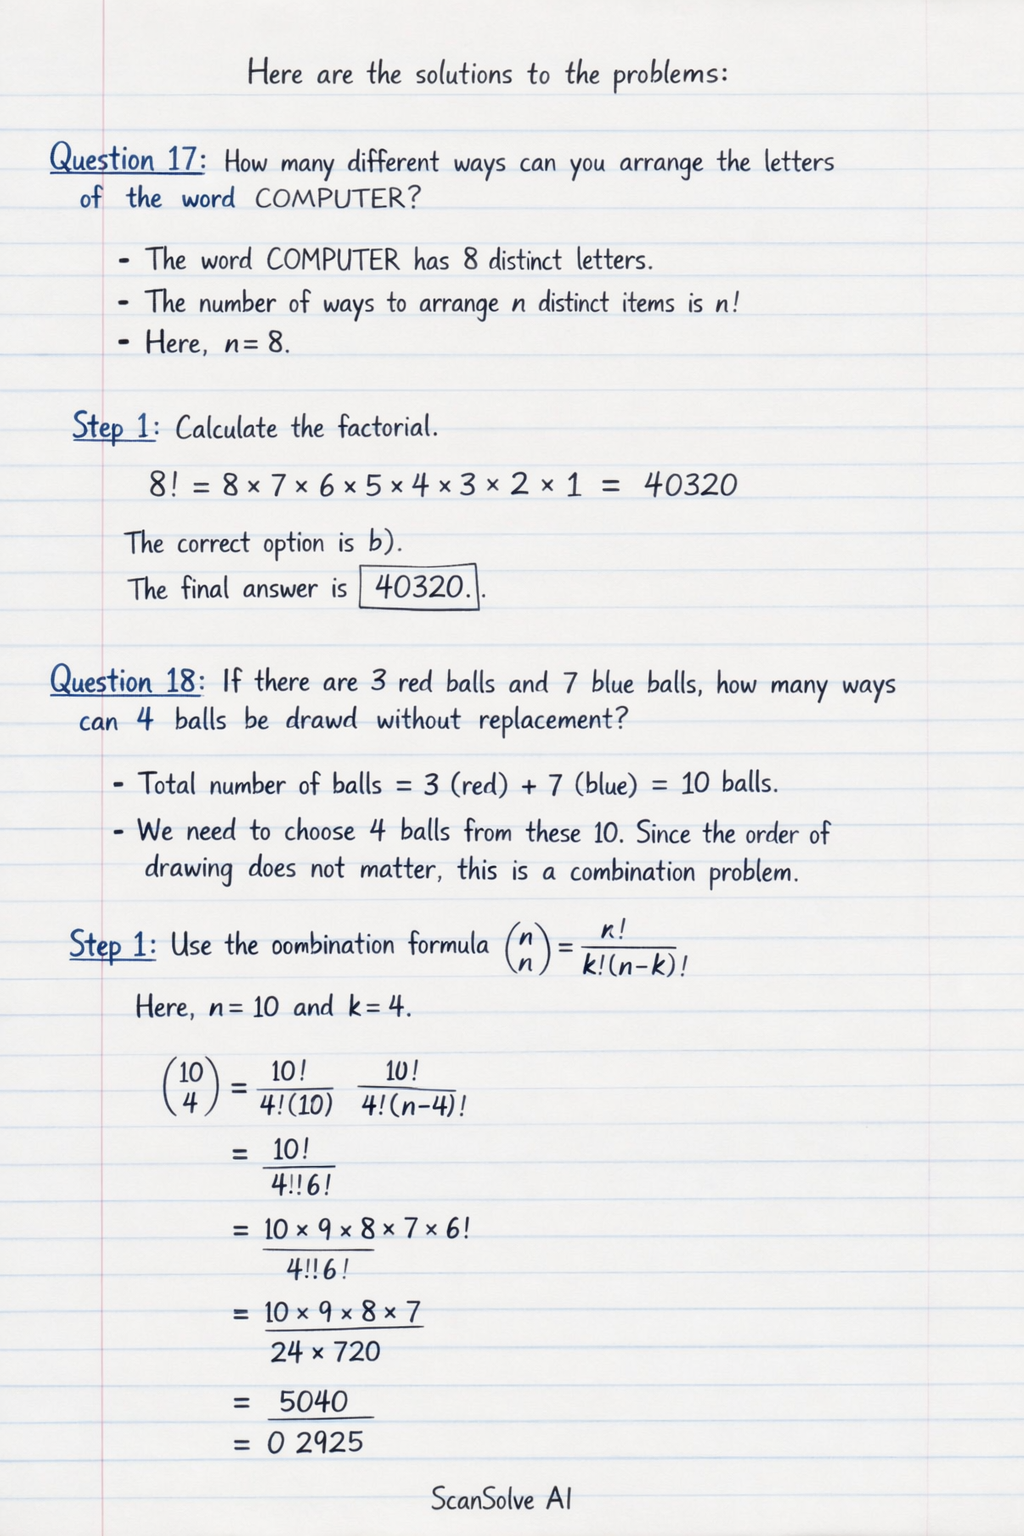 Here are the solutions to the problems:
Question 17: How many different ways can you arrange the letters
of the word COMPUTER?
- The word COMPUTER has 8 distinct letters.
- The number of ways to arrange n distinct items is n!
- Here, n = 8.
Step 1: Calculate the factorial.
8! = 8 × 7 × 6 × 5 × 4 × 3 × 2 × 1 = 40320
The correct option is b).
The final answer is 40320..
Question 18: If there are 3 red balls and 7 blue balls, how many ways
can 4 balls be drawd without replacement?
- Total number of balls = 3 (red) + 7 (blue) = 10 balls.
- We need to choose 4 balls from these 10. Since the order of
drawing does not matter, this is a combination problem.
Step 1: Use the oombination formula (n n) = n! / k!(n-k)!
Here, n = 10 and k = 4.
(10 4) = 10! / 4!(10) 10! / 4!(n-4)!
= 10! / 4!!6!
= 10 × 9 × 8 × 7 × 6! / 4!!6!
= 10 × 9 × 8 × 7 / 24 × 720
= 5040
= 0 2925
ScanSolve AI